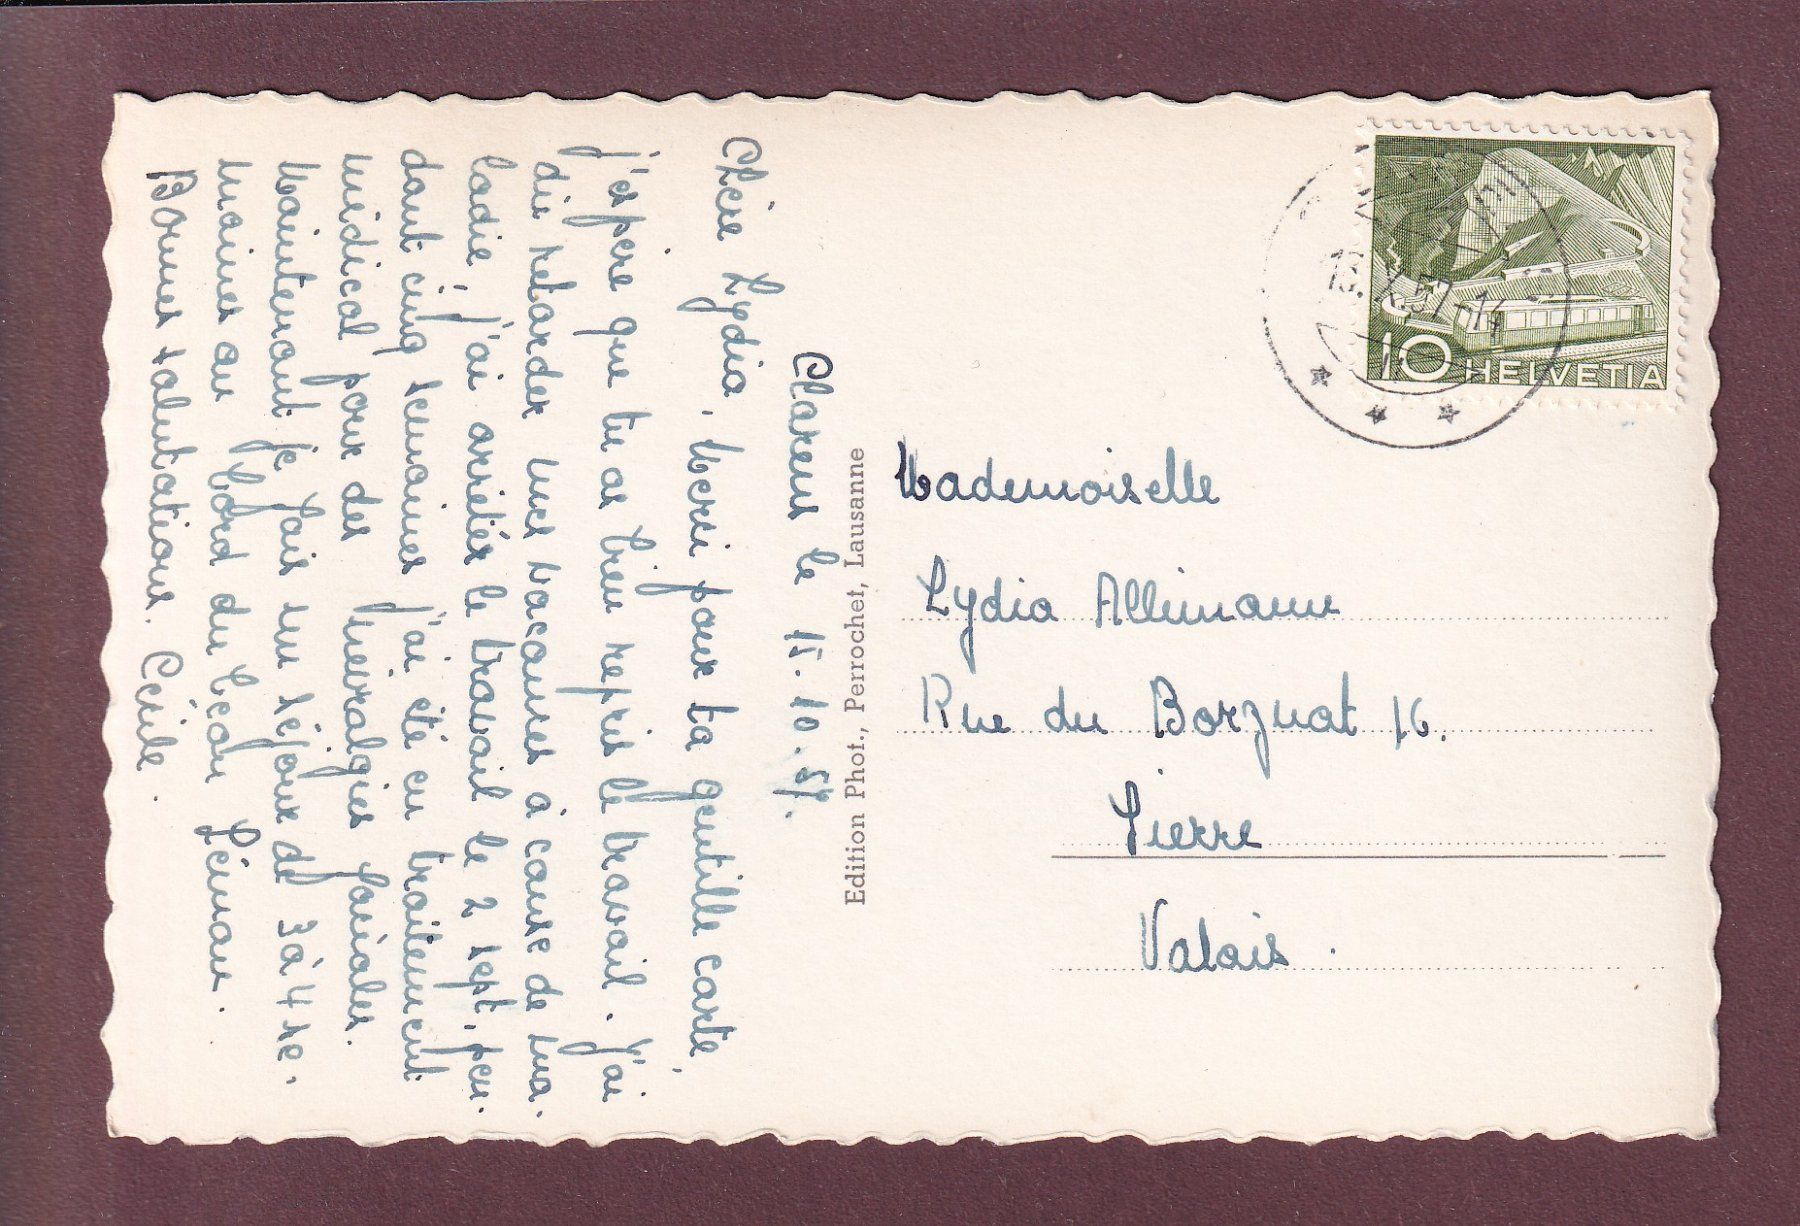 Clarens le 15.10.57.
Chère Lydia, Merci pour ta gentille carte,
j'espère que tu as bien repris le travail. J'ai
dû retarder mes vacances à cause de ma.
ladie, j'ai arrêtée le travail le 2 sept, pen.
dant cinq semaines j'ai été en traitement
médical pour des névralgies faciales.
Maintenant je fais un séjour de 3 à 4 se.
maines au bord du Léman.
Bonnes salutations. Cécile.
Edition Phot., Perrochet, Lausanne
10 HELVETIA
X.57-14
Mademoiselle
Lydia Allimann
Rue du Borzuat 16.
Sierre
Valais.